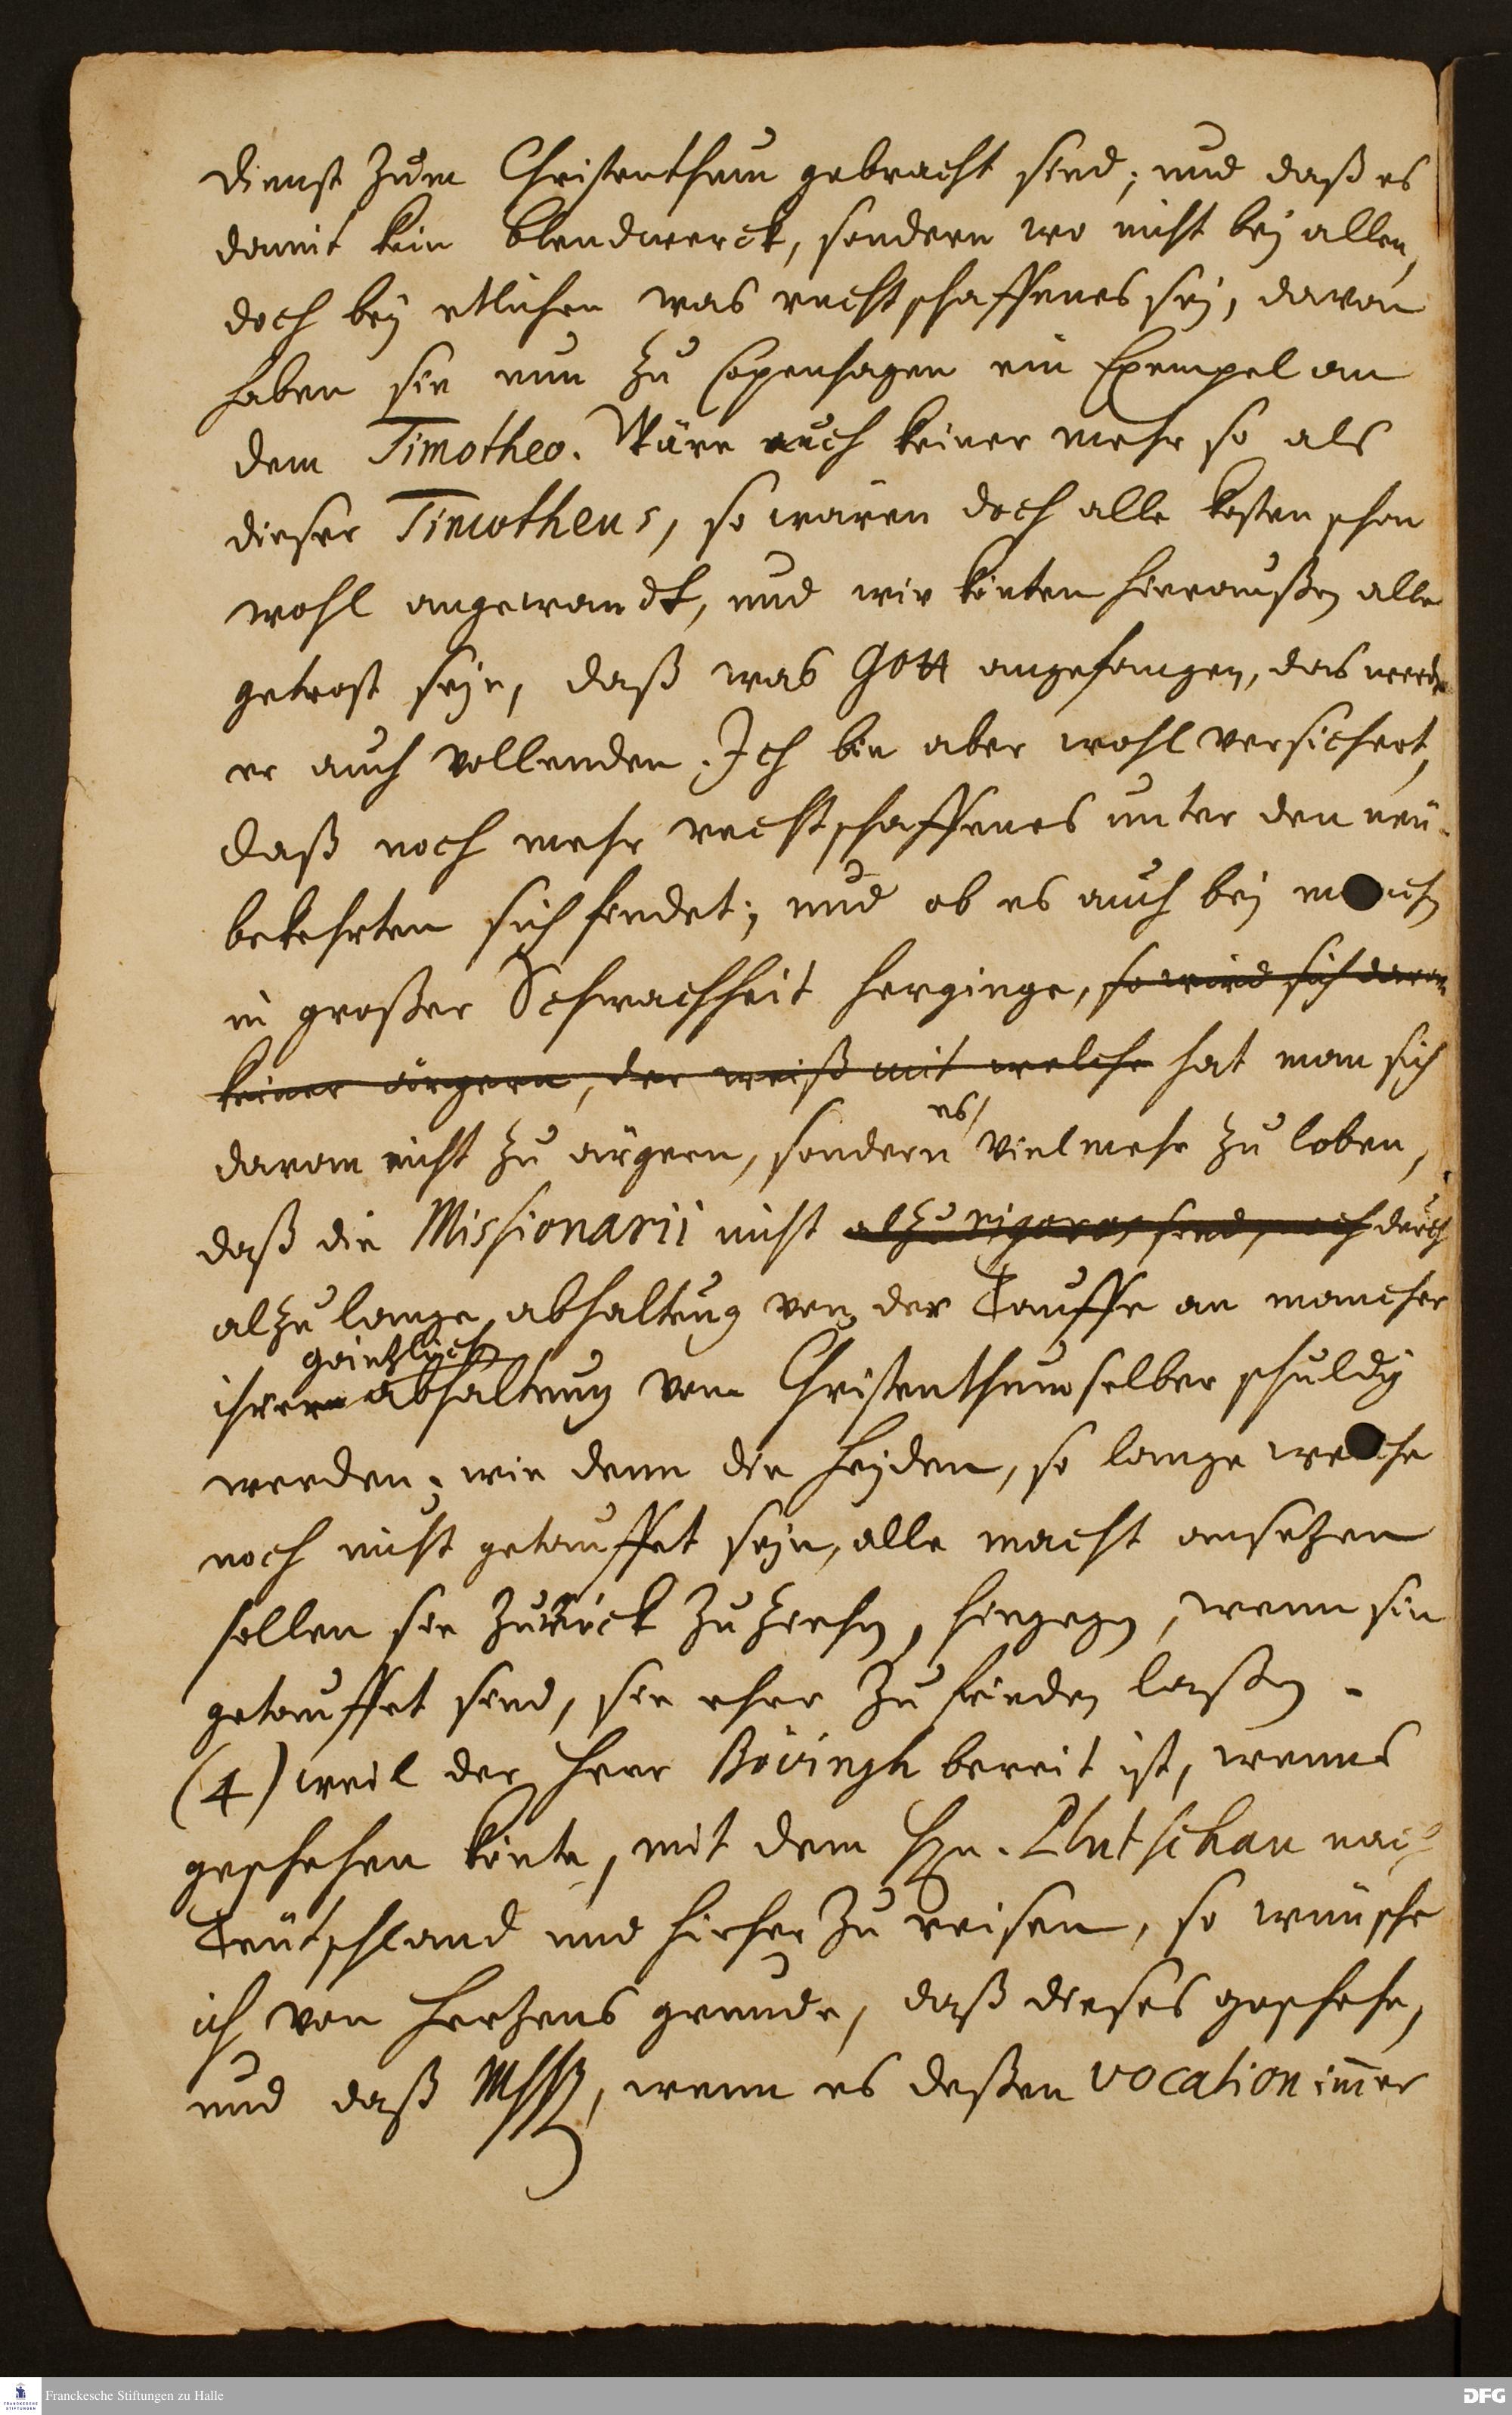 dienst zum Christenthum gebracht sind; und daß es
damit kein blendwerck, sondern wo nicht bey allen,
doch bey etlichen was rechtschaffenes sey, davon
haben sie nun zu Copenhagen ein Exempel an
dem Timotheo. Wäre auch keiner mehr so als
dieser Timotheus, so wären doch alle kosten schon
wohl angewandt, und wir könten hieraußen alle
getrost seyn, daß was Gott angefangen, das werde
er auch vollenden. Ich bin aber wohl versichert,
daß noch mehr rechtschaffenes unter den neü-
bekehrten sich findet; und ob es auch bey manchen
in großer Schwachheit herginge, so wird sich daran
keiner ärgern, der weiß mit welche hat man sich
daran nicht zu ärgern, sondern es vielmehr zu loben,
daß die Missionarii nicht alzu rigoros sind, noch durch
alzu lange abhaltung von der Tauffe an mancher
ihrer gäntzlich abhaltung vom Christenthum selber schuldig
werden; wie denn die heyden, so lange welche
noch nicht getauffet seyn, alle macht ansetzen
sollen sie zurück zu ziehen, hingegen, wenn sie
getauffet sind, sie eher zu frieden laßen.
(4) weil der Herr Bövingh bereit ist, wenns
geschehen könte, mit dem Hrn. Plutschau nach
Teütschland und hieher zu reisen, so wünsche
ich von hertzens grunde, daß dieses geschehe,
und daß , wenn es deßen vocation im̄er
Franckesche Stiftungen zu Halle
DFG